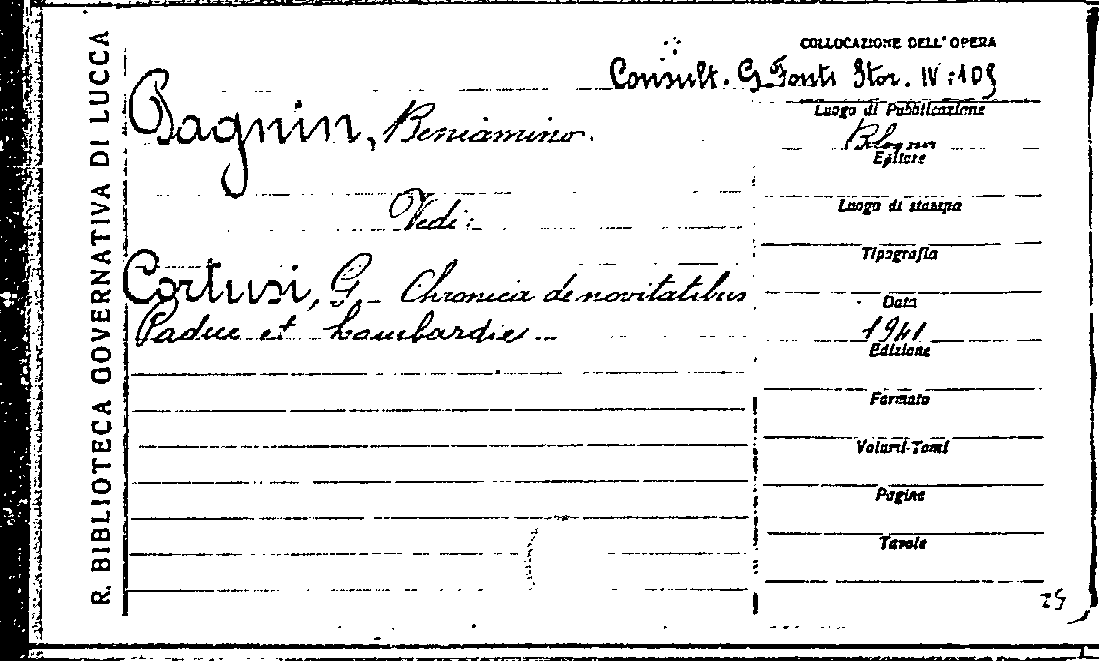 R. BIBLIOTECA GOVERNATIVA DI LUCCA
COLLOCAZIONE DELL' OPERA
Consult. G Fonti Stor. IV:105
Pagnin, Beniamino.
Vedi:
Cortusi, G. Chronica de novitatibus
Padue et Lombardie
Luogo di Pubblicazione
Bologna
Editore
Luogo di stampa
Tipografia
Data
1941
Edizione
Formato
Volumi-Tomi
Pagine
Tavole